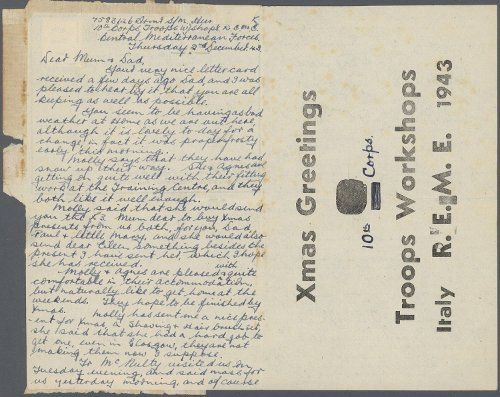 Dear Mum & Dad,
Your very nice letter card
received a few days ago Dad and I was
pleased to hear by it that you are all
keeping as well as possible.
You seem to be having as bad
weather at Home as we are out here,
although it is lovely to day for a
change, in fact it was proper frosty
early this morning.
Molly says that they have had
snow up their way. She & Agnes are
getting on quite well with their fitting
work at the Training Centre, and they
both like it well enough.
Molly said that she would send
you the £3 Mum dear to buy Xmas
presents from us both, for you, Dad
Paul & little Mary, and she would also
send dear Eileen something besides the
present I have sent her, which I hope
she has received
Molly & Agnes are pleased & quite
comfortable in their accommodation, with
but naturally like to get home at the
weekends. They hope to be finished by
Xmas.
Molly has sent me a nice pres-
ent for Xmas, a Shaving & Hair brush set,
she said that she had a hard job to
get one, even in Glasgow, they are not
making them now I suppose.
Fr McNulty visited us on
Tuesday evening, and said mass for
us yesterday morning, and of course
Central Mediterranean Forces
Thursday December 43
Xmas Greetings
10th Corps.
Troops Workshops
Italy R.E.M.E. 1943